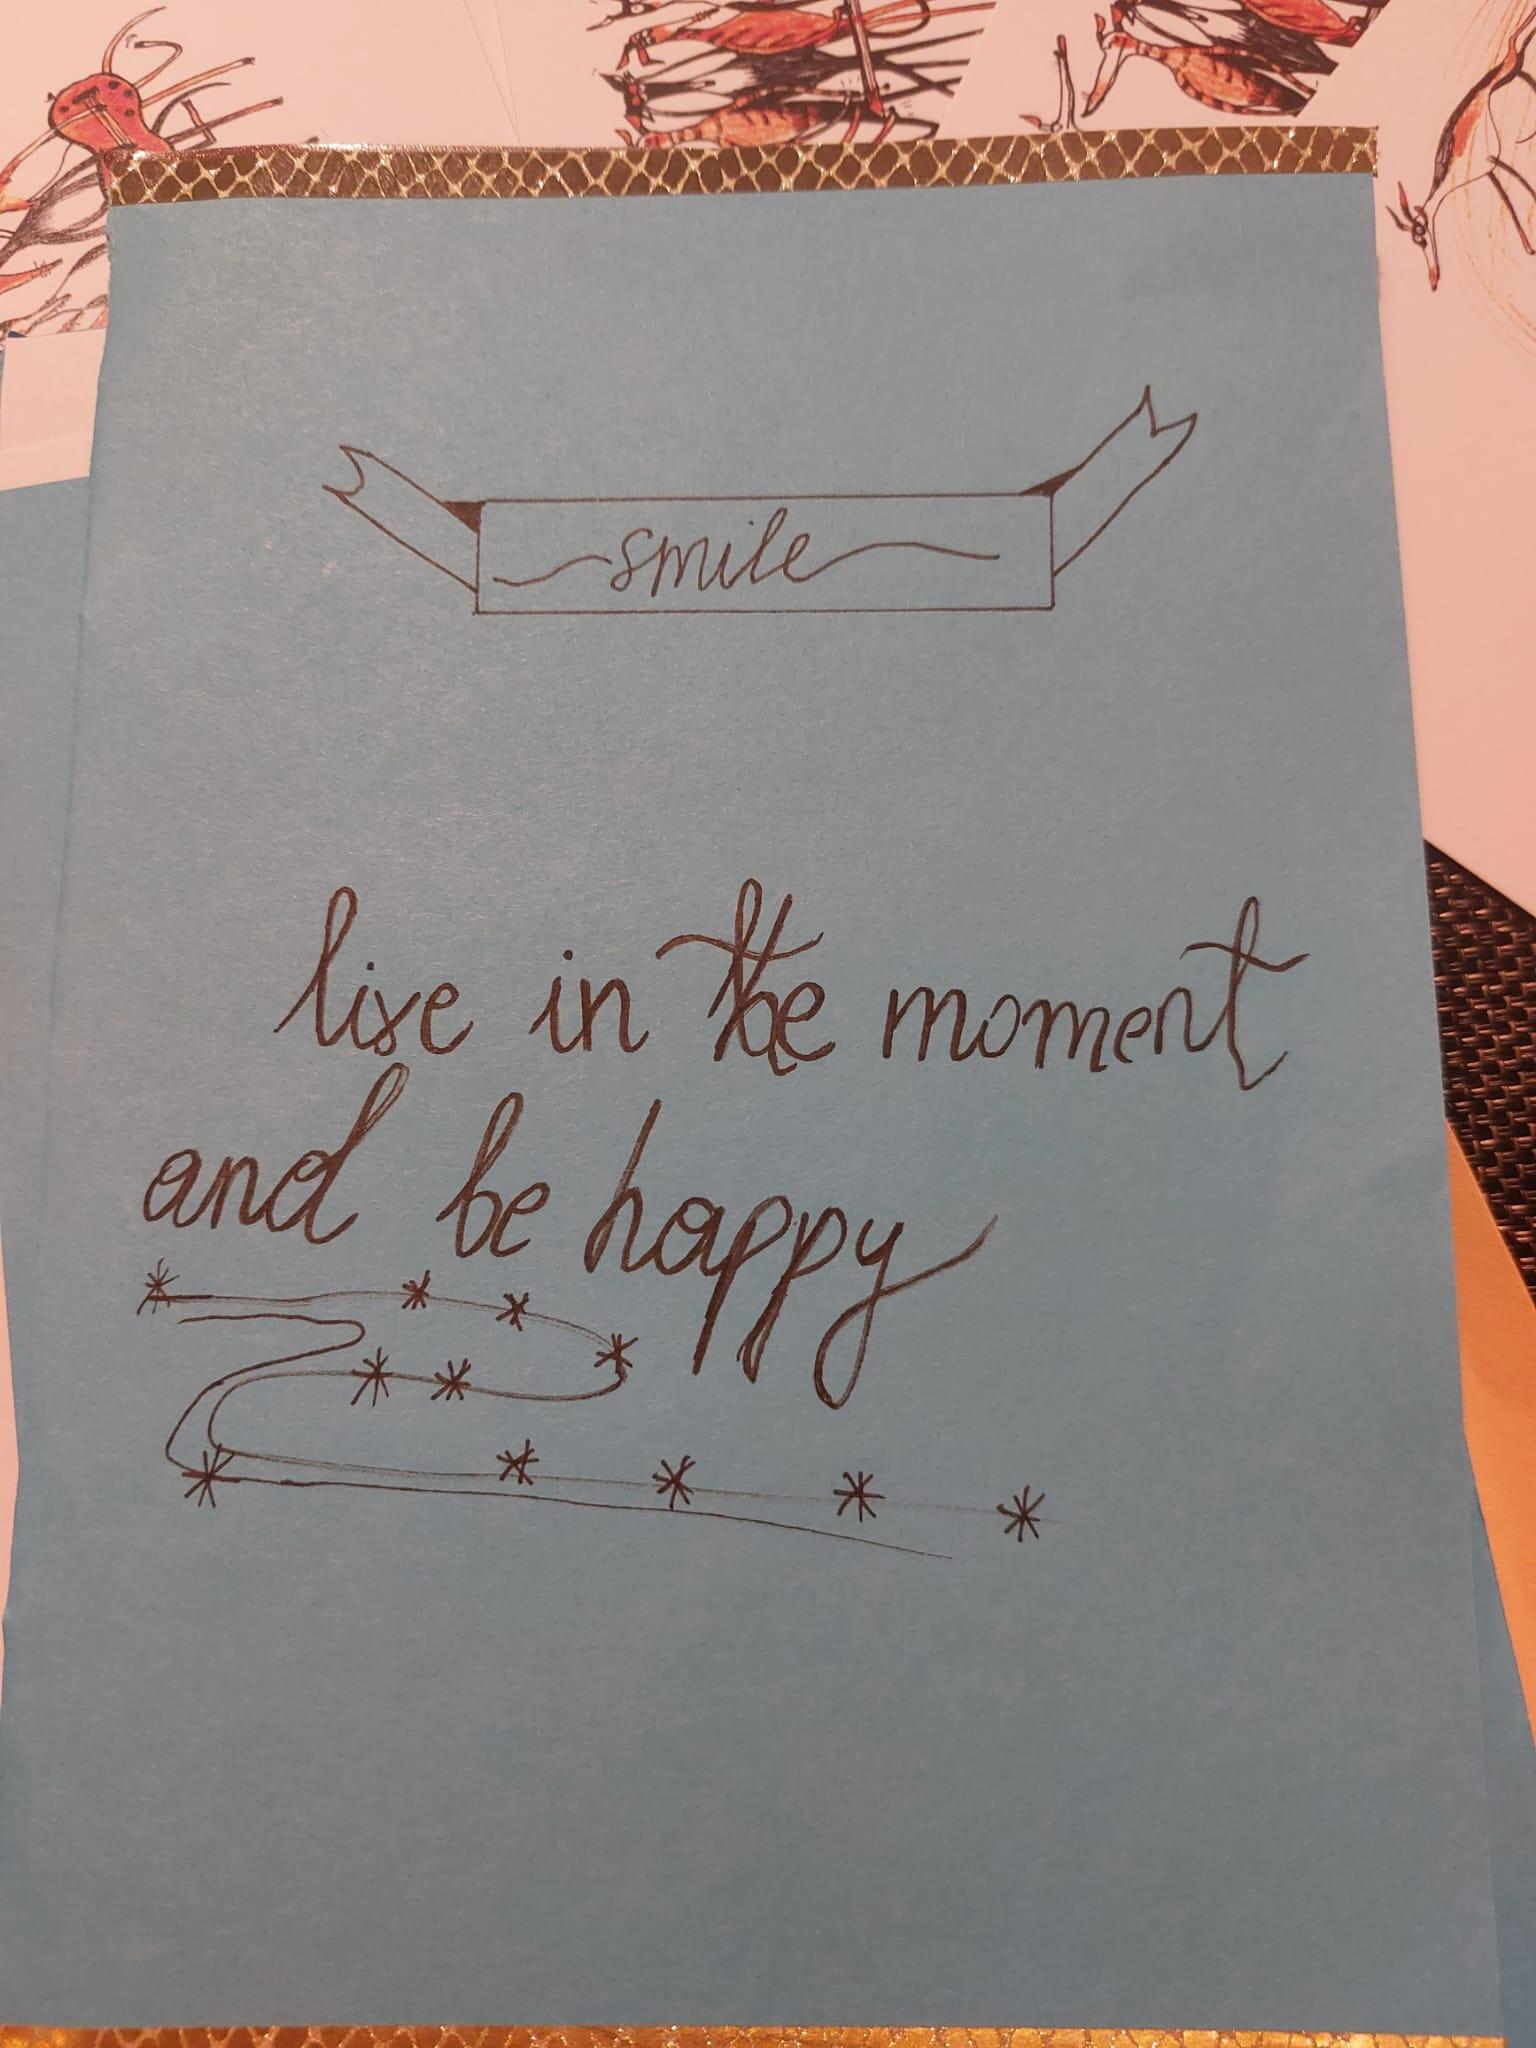 smile
live in the moment
and be happy